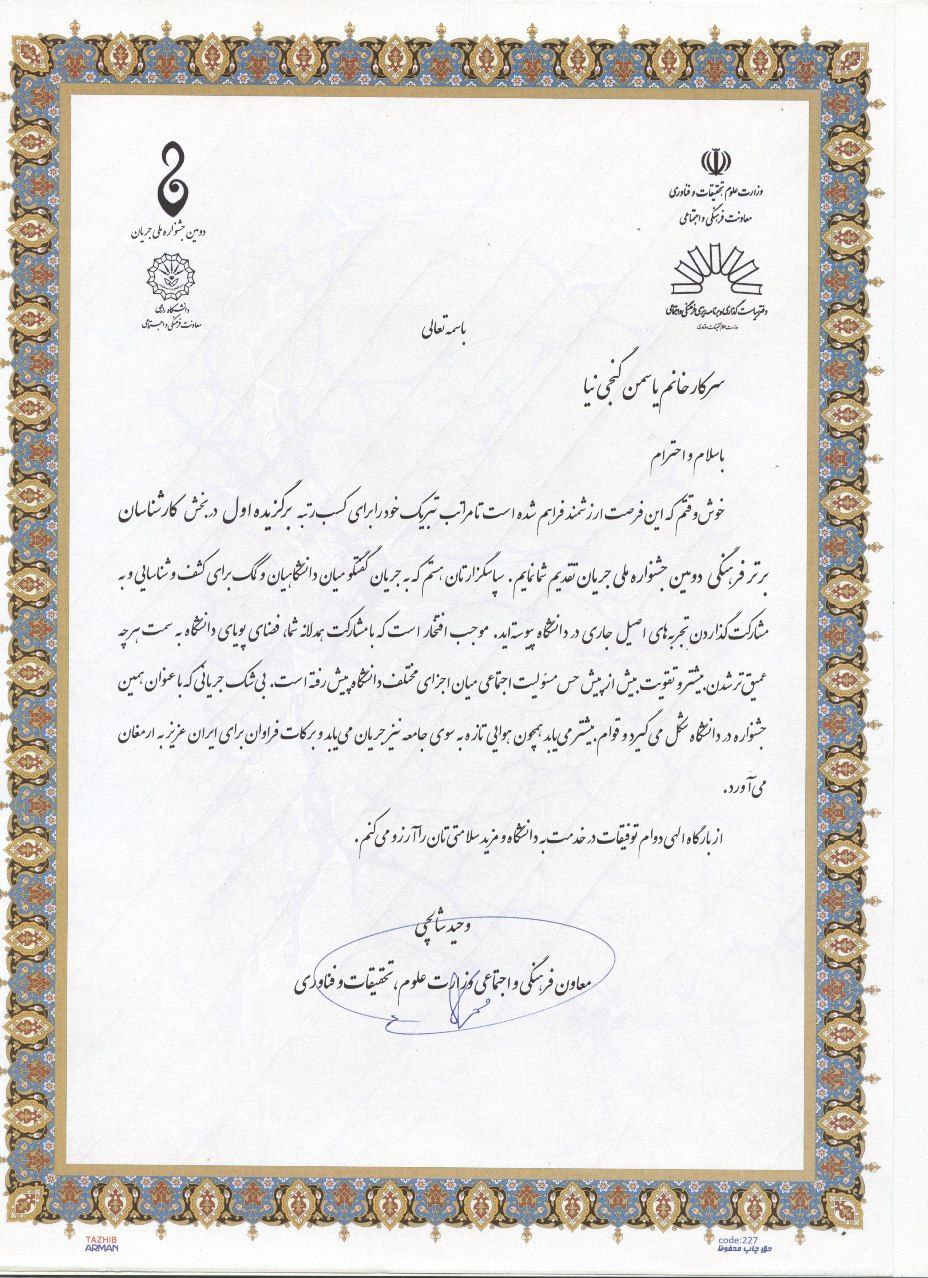 وزارت علوم تحقیقات و فناوری
معاونت فرهنگی و اجتماعی
دفتر سیاست گذاری و برنامه ریزی فرهنگی و اجتماعی
وزارت علوم تحقیقات و فناوری
دومین جشنواره ملی جریان
دانشگاه رازی
معاونت فرهنگی و اجتماعی
باسمه تعالی
سرکار خانم یاسمن گنجی نیا
با سلام و احترام
خوش وقتم که این فرصت ارزشمند فراهم شده است تا مراتب تبریک خود را برای کسب رتبه برگزیده اول در بخش کارشناسان
برتر فرهنگی دومین جشنواره ملی جریان تقدیم شما نمایم. سپاسگزارتان هستم که به جریان گفتگو میان دانشگاهیان و کمک برای کشف و شناسایی و به
مشارکت گذاردن تجربه های اصیل جاری در دانشگاه پیوسته اید. موجب افتخار است که با مشارکت همدلانه شما، فضای پویای دانشگاه به سمت هرچه
عمیق تر شدن، بیشتر و تقویت بیش از پیش حس مسئولیت اجتماعی میان اجزای مختلف دانشگاه پیش رفته است. بی شک جریانی که با عنوان همین
جشنواره در دانشگاه شکل می گیرد و قوام بیشتر می یابد همچون هوایی تازه به سوی جامعه نیز جریان می یابد و برکات فراوان برای ایران عزیز به ارمغان
می آورد.
از بارگاه الهی دوام توفیقات در خدمت به دانشگاه و مزید سلامتی تان را آرزو می کنم.
وحید شالچی
معاون فرهنگی و اجتماعی وزارت علوم، تحقیقات و فناوری
TAZHIB
ARMAN
code:227
حق چاپ محفوظ